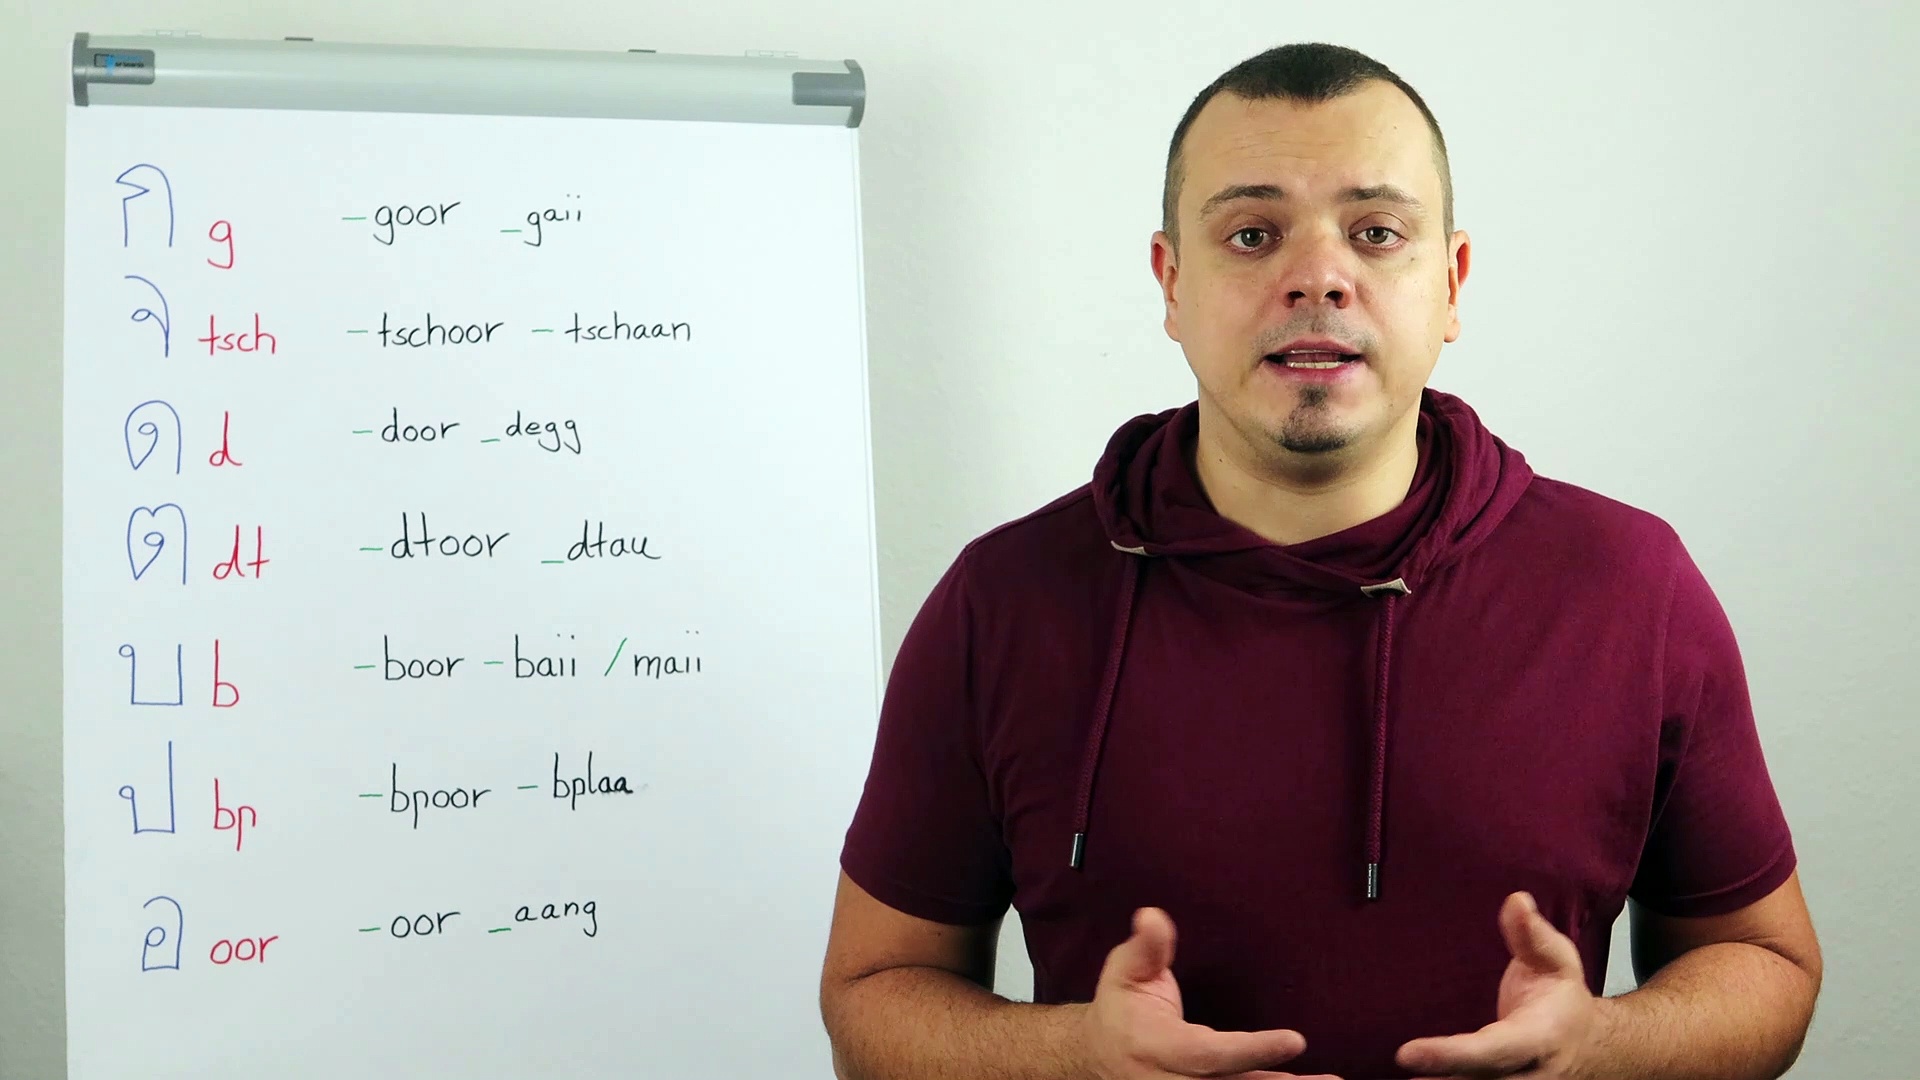 ก g –goor _gaii
จ tsch –tschoor –tschaan
ด d –door _degg
ต dt –dtoor _dtau
บ b –boor –baii /maii
ป bp –bpoor –bplaa
อ oor –oor _aang